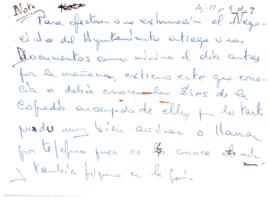 Nota
Para efectuar una exhumación el Nego-
ciado del Ayuntamiento entrega unos
Documentos como mínimo el día antes
por la mañana, extremo este que cono-
cía o debía conocer los Sres de la
Cofradía encargado de ello, por lo tanto
pudo muy bien avisar o llamar
por teléfono pues es conoce
y también figura en la